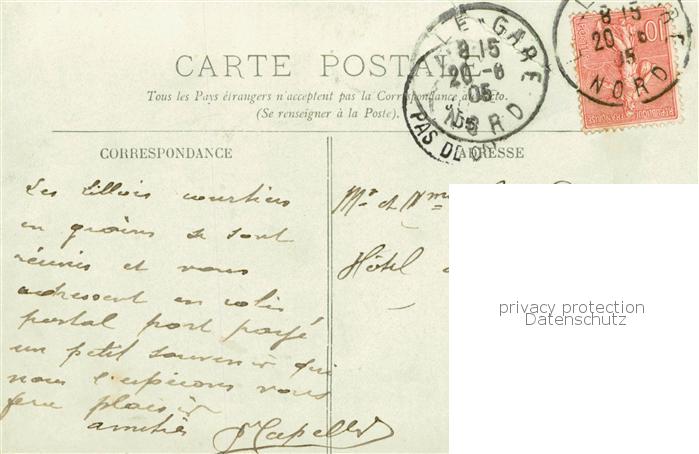 CARTE POSTALE
Tous les Pays étrangers n'acceptent pas la Correspondance au recto.
(Se renseigner à la Poste).
LILLE-GARE
8·15
20-6
05
NORD
PAS DE
LILLE-GARE
8·15
20-6
05
NORD
10c
POSTES
REPUBLIQUE FRANÇAISE
CORRESPONDANCE
ADRESSE
Les Lillois courtiers
en grains se sont
réunis et vous
adressent en colis
postal port payé
un petit souvenir qui
nous l'espérons vous
fera plaisir
amitiés
Mr et Mme
Hôtel
privacy protection
Datenschutz